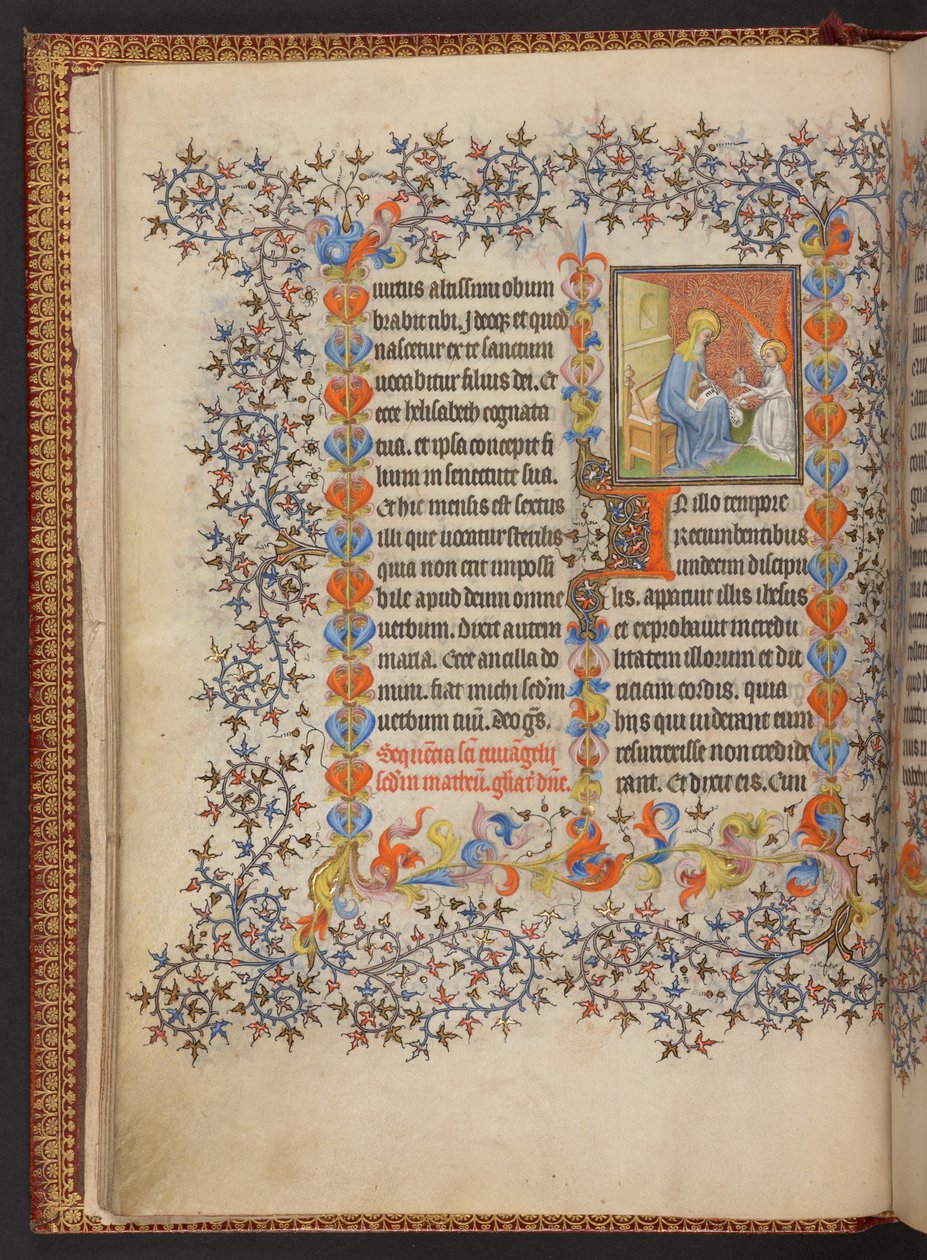 uirtus altissimi obum
brabit tibi. Ideoqz et quod
nascetur ex te sanctum
uocabitur filius dei. Et
ecce helisabeth cognata
tua. et ipsa concepit fi
lium in senectute sua.
Et hic mensis est sextus
illi que uocatur sterilis
quia non erit impossi
bile apud deum omne
uerbum. Dixit autem
maria. Ecce ancilla do
mini. fiat michi scdm
uerbum tuū. Deo grs.
Sequēcia scī euuāgelij
scdm matheū. glīa t dn̄e.
IN illo tempore
Recumbentibus
undecim discipu
lis. apparuit illis ihesus
et exprobauit incredu
litatem illorum et du
riciam cordis. quia
hijs qui uiderant eum
resurrexisse non credide
rant. Et dixit eis. Eun